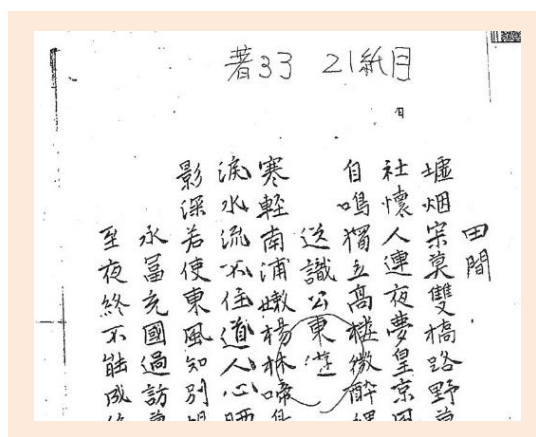 著33 21紙月
田間
墟烟宗莫雙橋路野
社懷人連夜夢皇京
自鳴獨立高樓微醉
送識公東遊
寒輕南浦嫩楊林啼
淚水流不住道人心
影深若使東風知別
永冨充國過訪
至夜終不能成